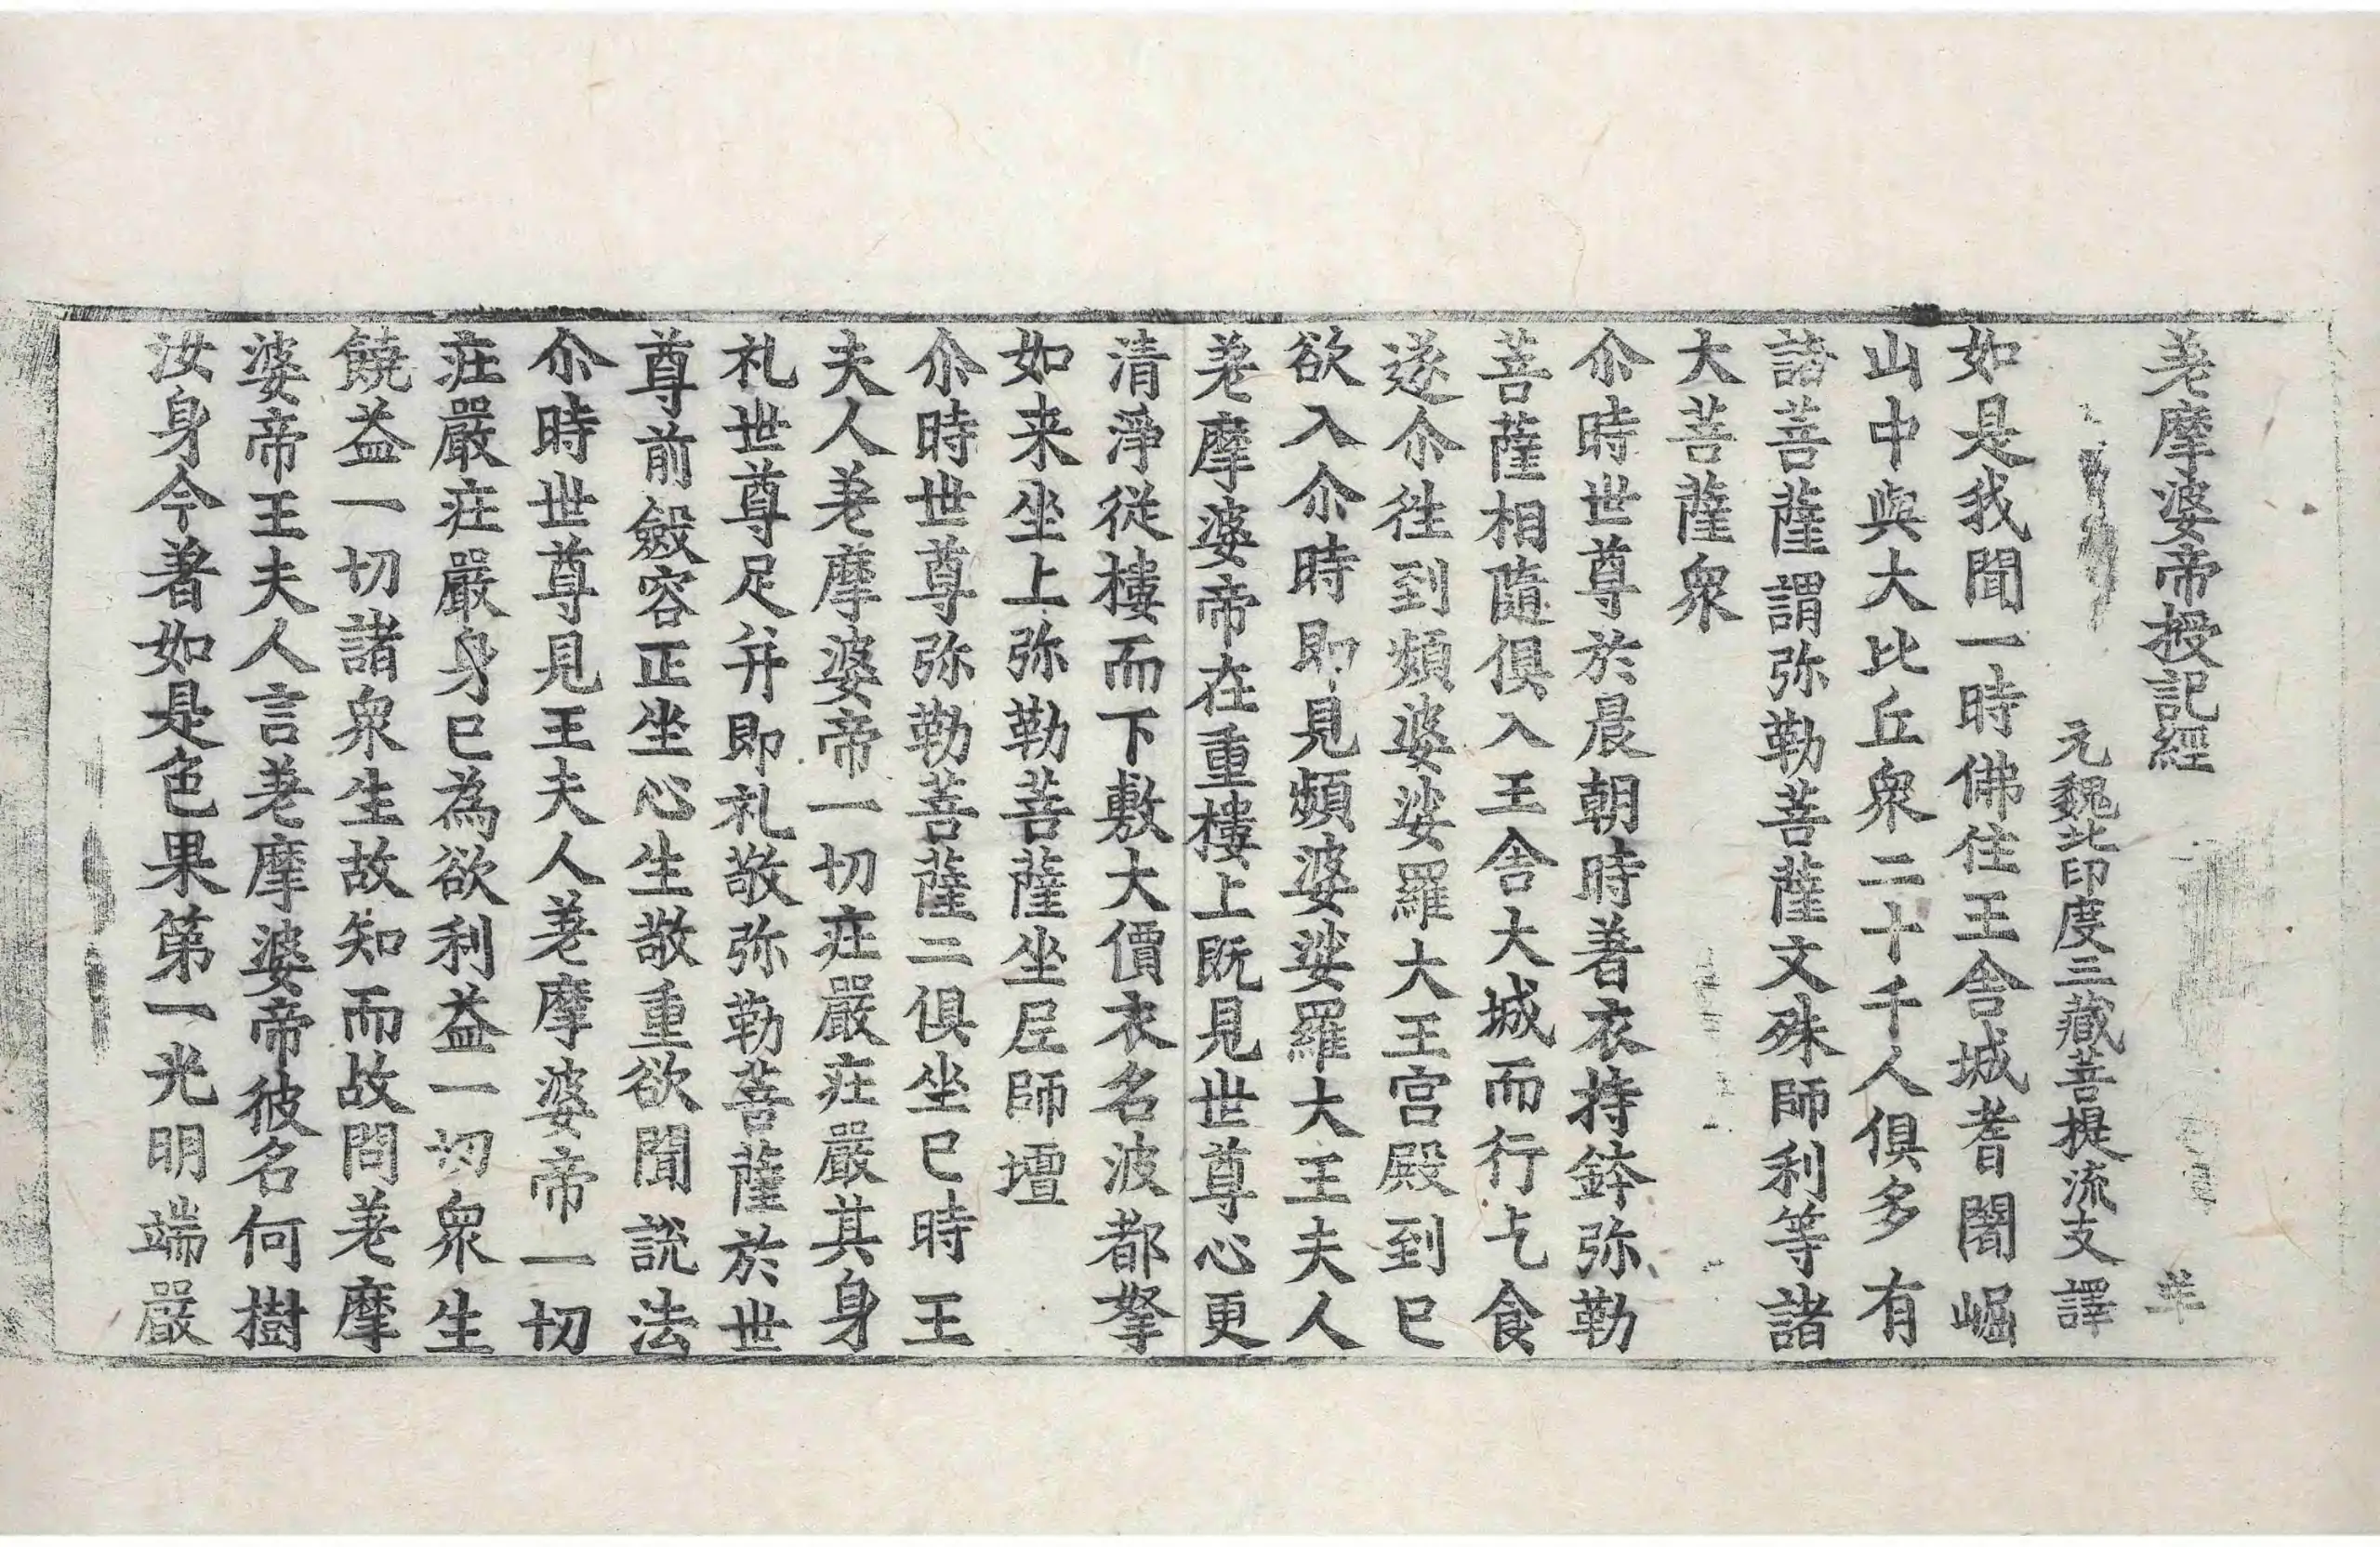 差摩婆帝授記經 羊
元魏北印度三藏菩提流支 譯
如是我聞一時佛住王舍城耆闍崛
山中與大比丘衆二十千人俱多有
諸菩薩謂弥勒菩薩文殊師利等諸
大菩薩衆
尒時世尊於晨朝時著衣持鉢弥勒
菩薩相隨俱入王舍大城而行乞食
遂尒徃到頻婆娑羅大王宫殿到已
欲入尒時即見頻婆娑羅大王夫人
差摩婆帝在重樓上既見世尊心更
清淨從樓而下敷大價衣名波都拏
如来坐上弥勒菩薩坐𡊄師壇
尒時世尊弥勒菩薩二俱坐已時王
夫人差摩婆帝一切庄嚴庄嚴其身
礼世尊足并即礼敬弥勒菩薩於世
尊前斂容正坐心生敬重欲聞說法
尒時世尊見王夫人差摩婆帝一切
庄嚴庄嚴身已為欲利益一切衆生
饒益一切諸衆生故知而故問差摩
婆帝王夫人言差摩婆帝彼名何樹
汝身今著如是色果第一光明端嚴